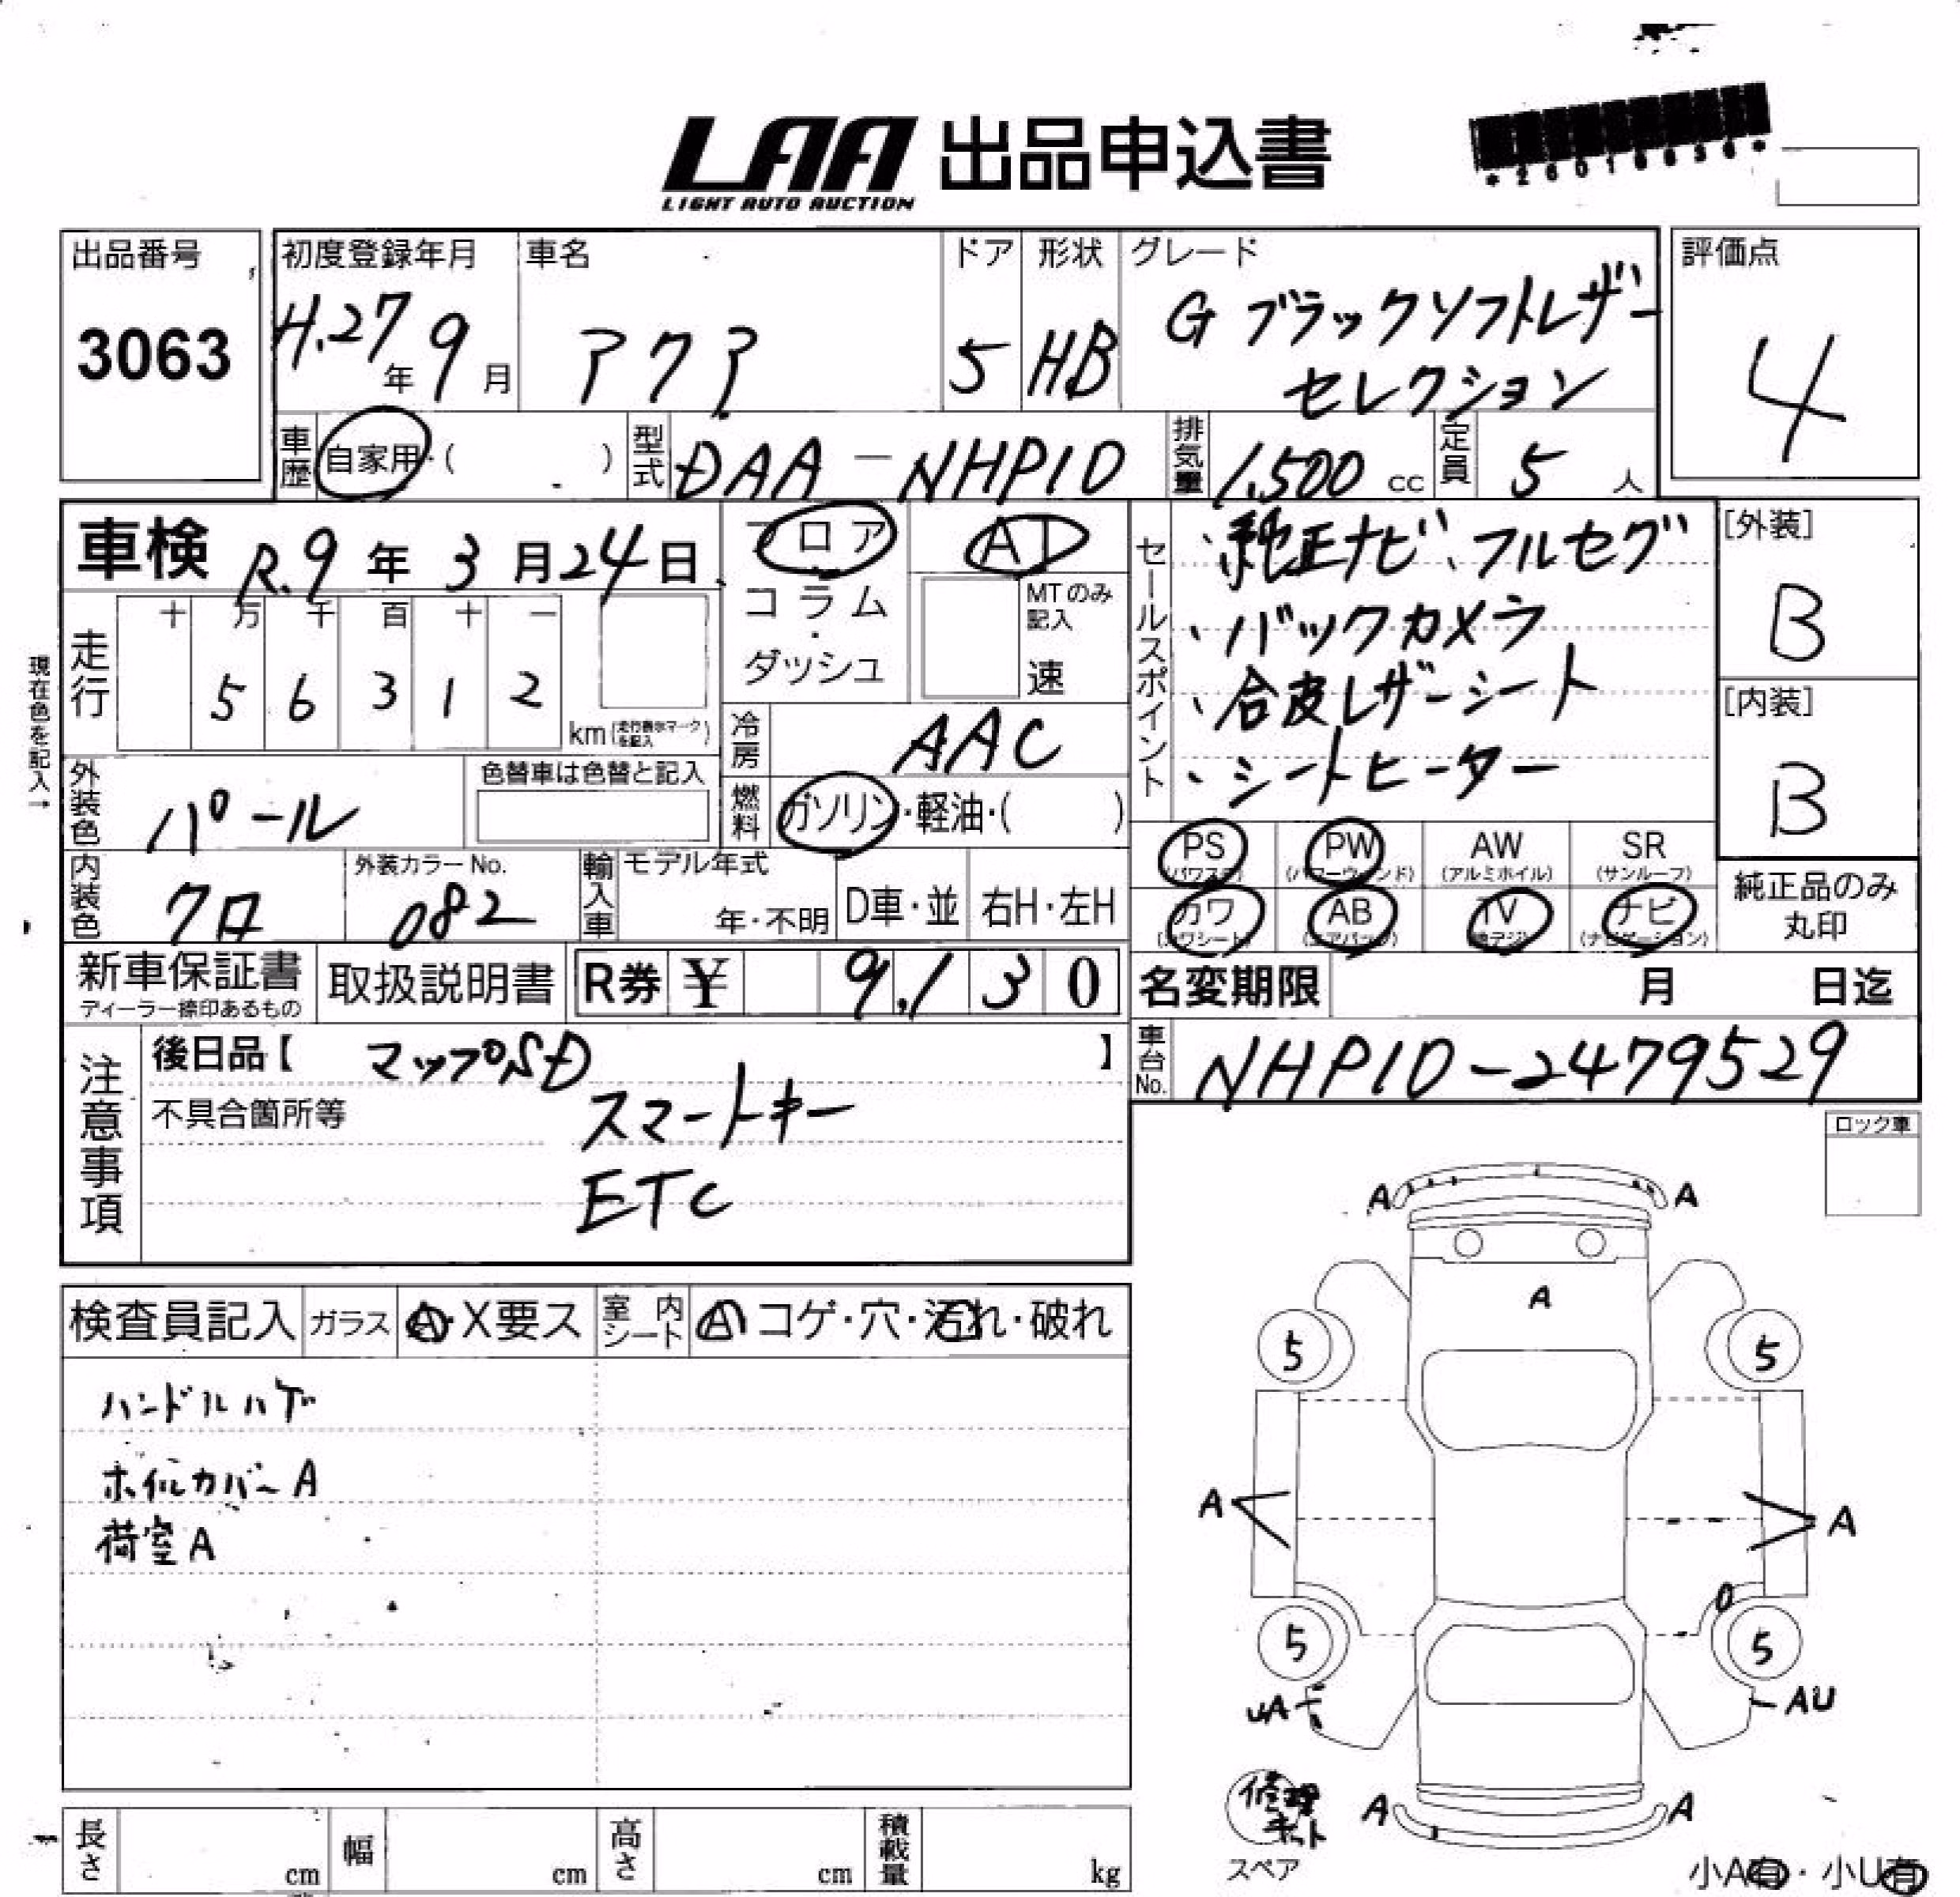 LAA 出品申込書
LIGHT AUTO AUCTION
*26016656*
出品番号
3063
初度登録年月
H.27年9月
車名
アクア
ドア
5
形状
HB
グレード
G ブラックソフトレザー
セレクション
評価点
4
車歴 自家用・( )
型式 DAA-NHP10
排気量 1,500 cc
定員 5 人
車検 R.9年3月24日
フロア
コラム
・
ダッシュ
AT
MTのみ
記入
速
現在色を記入→
走行
十 万 千 百 十 一
5 6 3 1 2
km(走行表示マークを記入)
冷房 AAC
セールスポイント
・純正ナビ、フルセグ
・バックカメラ
・合皮レザーシート
・シートヒーター
[外装]
B
[内装]
B
外装色 パール
色替車は色替と記入
燃料 ガソリン・軽油・( )
PS (パワステ)
PW (パワーウィンドウ)
AW (アルミホイル)
SR (サンルーフ)
カワ (カワシート)
AB (エアバック)
TV (地デジ)
ナビ (ナビゲーション)
純正品のみ
丸印
内装色 クロ
外装カラーNo.
082
輸入車
モデル年式
年・不明
D車・並
右H・左H
新車保証書
ディーラー捺印あるもの
取扱説明書
R券 ¥ 9,130
名変期限 月 日迄
注意事項
後日品【 マップSD 】
不具合箇所等
スマートキー
ETC
車台No. NHP10-2479529
ロック車
検査員記入
ガラス A・X要ス
室内シート A コゲ・穴・汚れ・破れ
ハンドルハゲ
ホイルカバーA
荷室A
A A
A
5 5
A A
0
5 5
UA AU
A A
修理
キット
スペア
小A有・小U有
長さ cm
幅 cm
高さ cm
積載量 kg